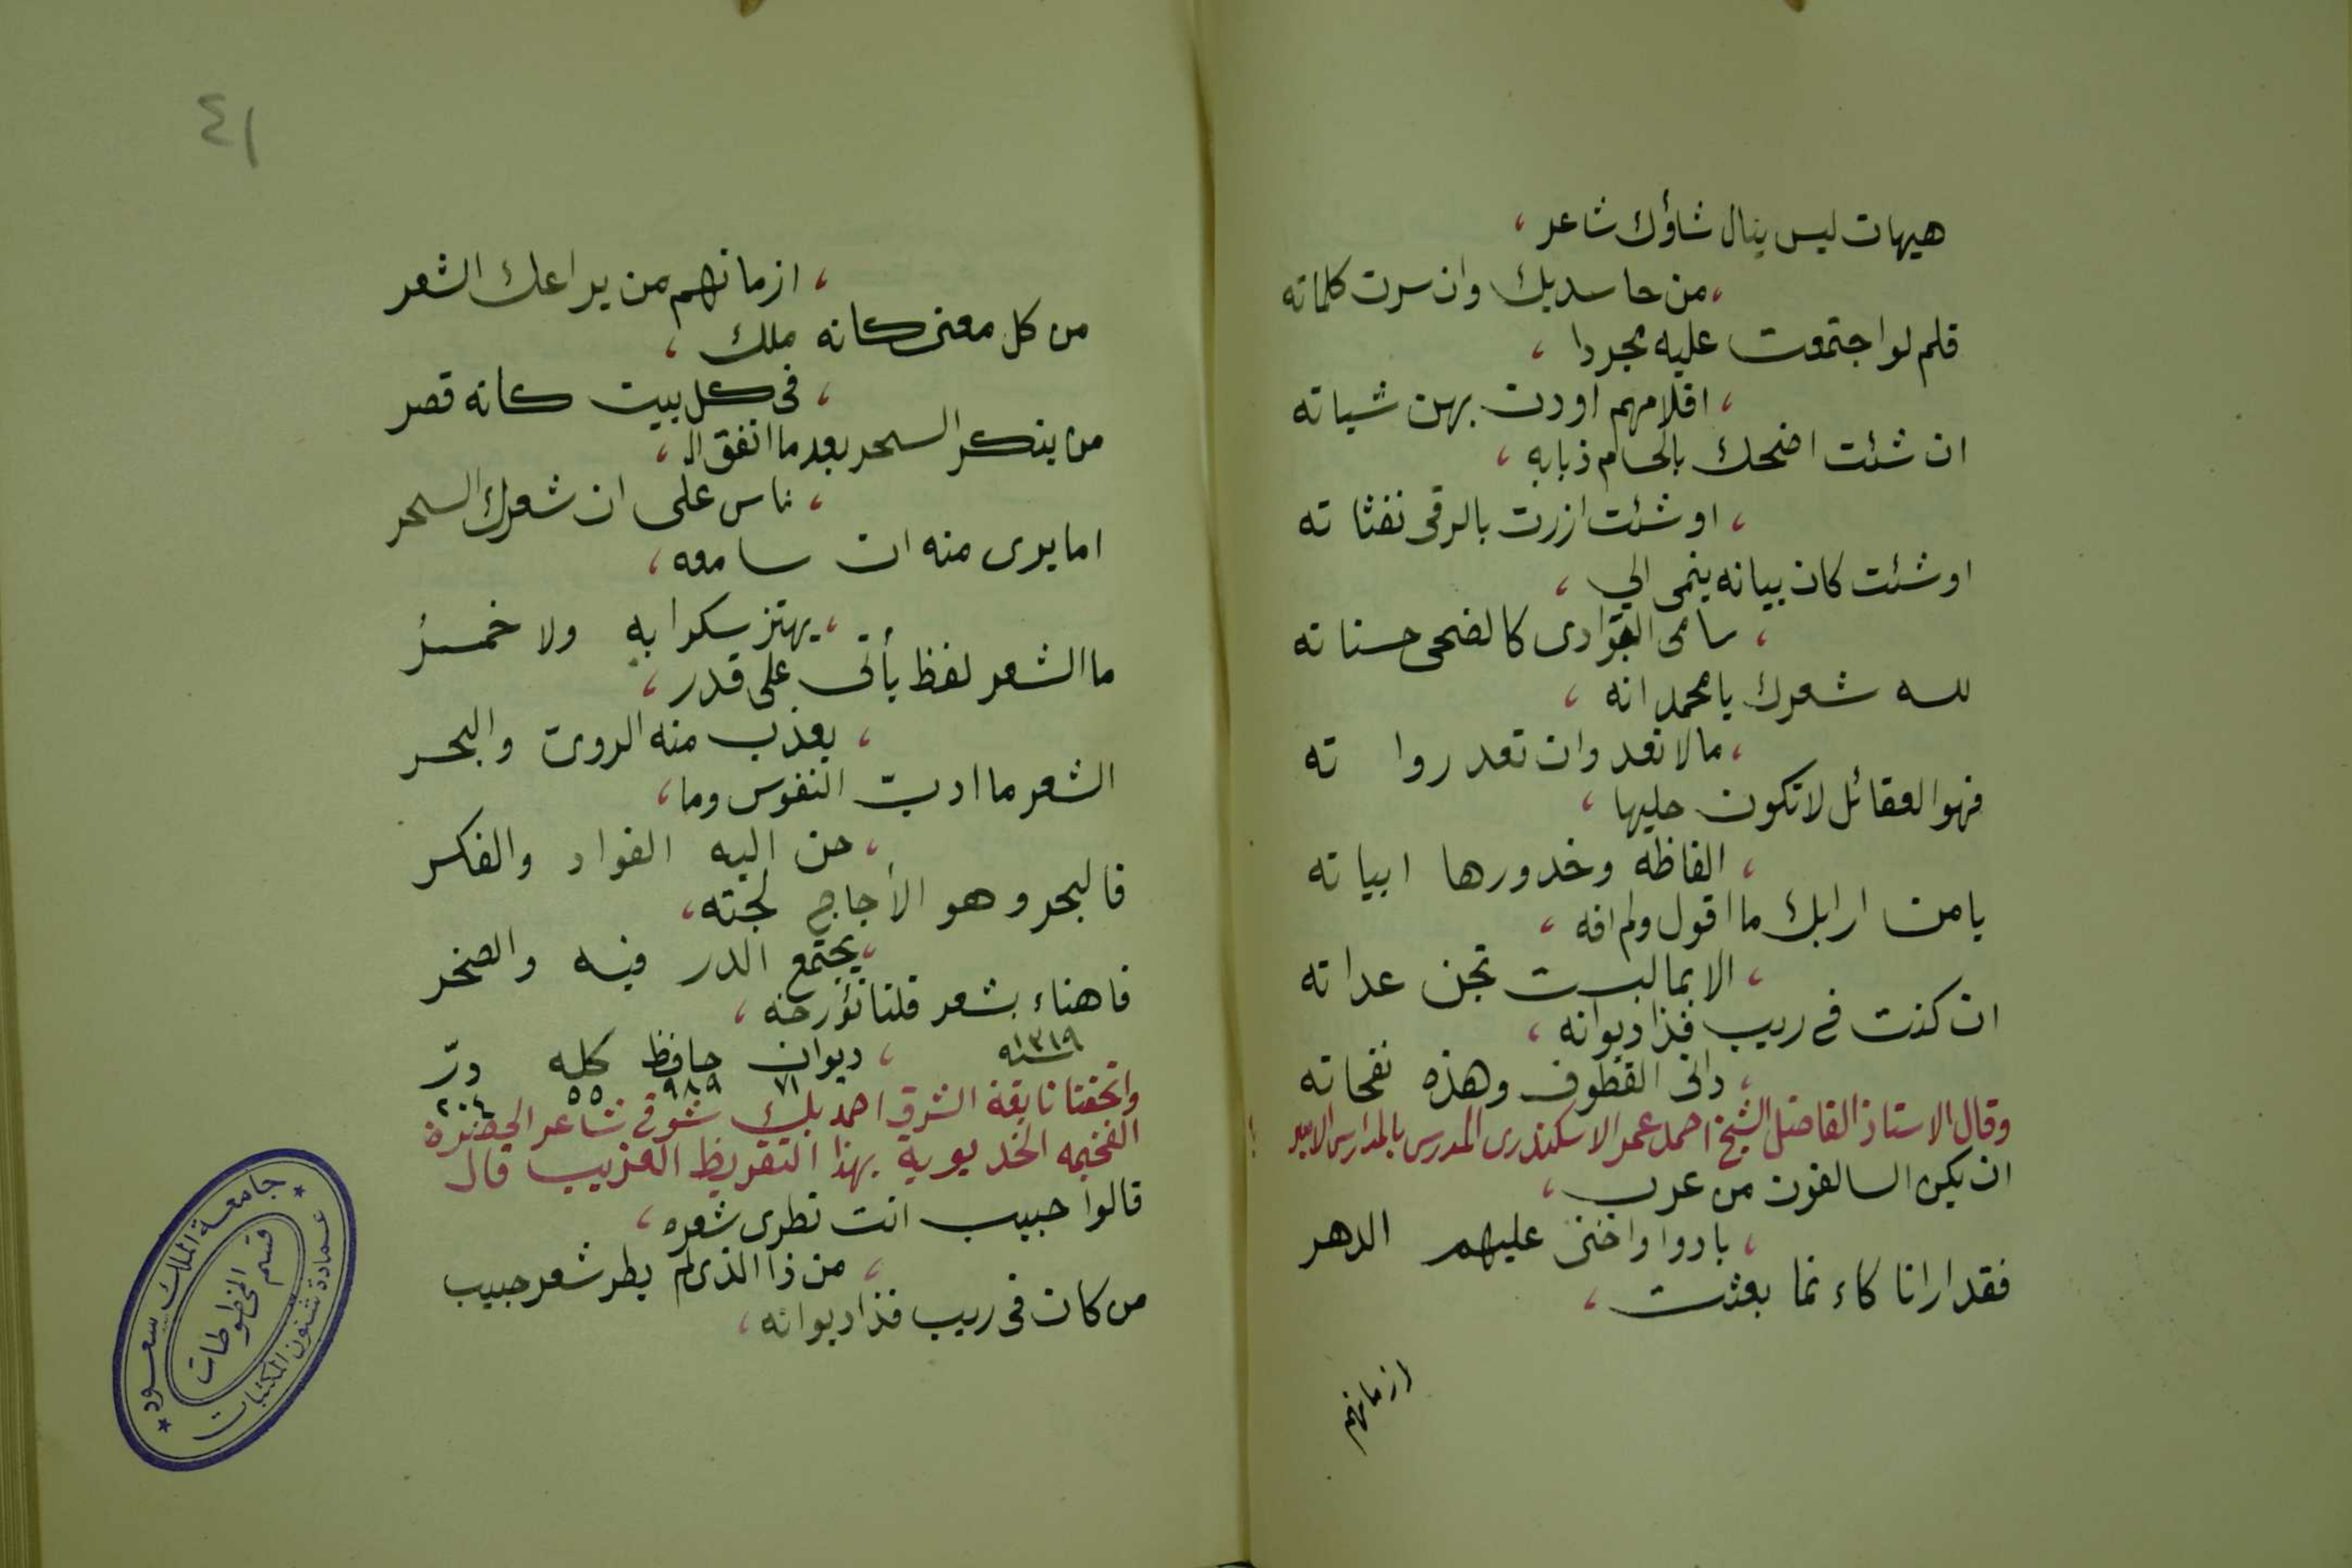 هيهات ليس ينال شاؤك شاعر ،
، من حاسديك وان سرت كلماته
قلم لو اجتمعت عليه مجردا ،
، اقلامهم اودت بهن شباته
ان شئت اضحك بالحسام ذبابه ،
، او شئت ازرت بالرقى نفثاته
او شئت كان بيانه ينمى الي ،
، سامى كالضحى حسناته
لله شعرك يا محمد انه ،
، مالا نعد وان تعد رواته
فهو العقائل لا تكون حليها ،
، الفاظه وخدورها ابياته
يا من ارابك ما اقول ولم افه ،
، الا بما ليست تجن عداته
ان كنت فى ريب فذا ديوانه ،
، دانى القطوف وهذه نفحاته
وقال الاستاذ الفاضل الشيخ احمد عمر الاسكندرى المدرس بالمدارس
ان يكن السالفون من عرب ،
، بادوا واخنى عليهم الدهر
فقد ارانا كاءنما بعثت ،
ازمانهم
٤١
، ازمانهم من يراعك الشعر
من كل معنى كانه ملك ،
، فى كل بيت كانه قصر
من ينكر السحر بعد ما اتفق الـ ،
، ناس على ان شعرك السحر
اما يرى منه ان سامعه ،
، يهتز سكرا به ولا خمر
ما الشعر لفظ يأتى على قدر ،
، يعذب منه الروىّ والبحر
الشعر ما ادبّ النفوس وما ،
، حن اليه الفواد والفكر
فالبحر وهو الأجاج لجته ،
، يجتمع الدر فيه والصخر
فاهناء بشعر قلنا نؤرخه ،
سنه ١٣١٩
، ديوان حافظ كله درّ
٧١ ٩٨٩ ٥٥ ٢٠٤
واتحفنا نابغة الشرق احمد بك شوقى شاعر الحضرة
الفخيمه الخديوية بهذا التقريظ العزيب قال
قالوا حبيب انت تطرى شعره ،
، من ذا الذى لم يطر شعر حبيب
من كان فى ريب فذا ديوانه ،
جامعة الملك سعود
قسم المخطوطات
عمادة شئون المكتبات